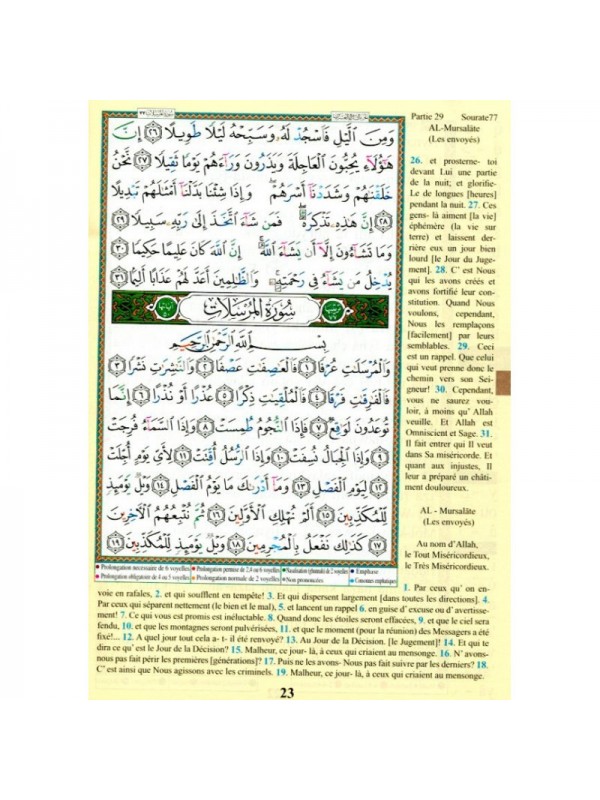 Partie 29 Sourate77
AL-Mursalâte
(Les envoyés)
وَمِنَ ٱلَّيْلِ فَٱسْجُدْ لَهُۥ وَسَبِّحْهُ لَيْلًا طَوِيلًا ٢٦ إِنَّ
هَٰٓؤُلَآءِ يُحِبُّونَ ٱلْعَاجِلَةَ وَيَذَرُونَ وَرَآءَهُمْ يَوْمًا ثَقِيلًا ٢٧ نَّحْنُ
خَلَقْنَٰهُمْ وَشَدَدْنَآ أَسْرَهُمْ وَإِذَا شِئْنَا بَدَّلْنَآ أَمْثَٰلَهُمْ تَبْدِيلًا
٢٨ إِنَّ هَٰذِهِۦ تَذْكِرَةٌ فَمَن شَآءَ ٱتَّخَذَ إِلَىٰ رَبِّهِۦ سَبِيلًا ٢٩
وَمَا تَشَآءُونَ إِلَّآ أَن يَشَآءَ ٱللَّهُ إِنَّ ٱللَّهَ كَانَ عَلِيمًا حَكِيمًا ٣٠
يُدْخِلُ مَن يَشَآءُ فِى رَحْمَتِهِۦ وَٱلظَّٰلِمِينَ أَعَدَّ لَهُمْ عَذَابًا أَلِيمًا ٣١
سُورَةُ المُرْسَلَاتِ
بِسْمِ ٱللَّهِ ٱلرَّحْمَٰنِ ٱلرَّحِيمِ
وَٱلْمُرْسَلَٰتِ عُرْفًا ١ فَٱلْعَٰصِفَٰتِ عَصْفًا ٢ وَٱلنَّٰشِرَٰتِ نَشْرًا ٣
فَٱلْفَٰرِقَٰتِ فَرْقًا ٤ فَٱلْمُلْقِيَٰتِ ذِكْرًا ٥ عُذْرًا أَوْ نُذْرًا ٦ إِنَّمَا
تُوعَدُونَ لَوَٰقِعٌ ٧ فَإِذَا ٱلنُّجُومُ طُمِسَتْ ٨ وَإِذَا ٱلسَّمَآءُ فُرِجَتْ
٩ وَإِذَا ٱلْجِبَالُ نُسِفَتْ ١٠ وَإِذَا ٱلرُّسُلُ أُقِّتَتْ ١١ لِأَىِّ يَوْمٍ أُجِّلَتْ
١٢ لِيَوْمِ ٱلْفَصْلِ ١٣ وَمَآ أَدْرَىٰكَ مَا يَوْمُ ٱلْفَصْلِ ١٤ وَيْلٌ يَوْمَئِذٍ
لِّلْمُكَذِّبِينَ ١٥ أَلَمْ نُهْلِكِ ٱلْأَوَّلِينَ ١٦ ثُمَّ نُتْبِعُهُمُ ٱلْءَاخِرِينَ
١٧ كَذَٰلِكَ نَفْعَلُ بِٱلْمُجْرِمِينَ ١٨ وَيْلٌ يَوْمَئِذٍ لِّلْمُكَذِّبِينَ ١٩
26. et prosterne- toi
devant Lui une partie
de la nuit; et glorifie-
Le de longues [heures]
pendant la nuit. 27. Ces
gens- là aiment [la vie]
éphémère (la vie sur
terre) et laissent der-
rière eux un jour bien
lourd [le Jour du Juge-
ment]. 28. C' est Nous
qui les avons créés et
avons fortifié leur con-
stitution. Quand Nous
voulons, cependant,
Nous les remplaçons
[facilement] par leurs
semblables. 29. Ceci
est un rappel. Que celui
qui veut prenne donc le
chemin vers son Sei-
gneur! 30. Cependant,
vous ne saurez vou-
loir, à moins qu' Allah
veuille. Et Allah est
Omniscient et Sage. 31.
Il fait entrer qui Il veut
dans Sa miséricorde. Et
quant aux injustes, Il
leur a préparé un châti-
ment douloureux.
AL - Mursalâte
(Les envoyés)
Au nom d'Allah,
le Tout Miséricordieux,
le Très Miséricordieux.
Prolongation nécessaire de 6 voyelles
Prolongation permise de 2,4 ou 6 voyelles
Nasalisation (ghunnah) de 2 voyelles
Emphase
Prolongation obligatoire de 4 ou 5 voyelles
Prolongation normale de 2 voyelles
Non prononcées
Consonnes emphatiques
1. Par ceux qu' on en-
voie en rafales, 2. et qui soufflent en tempête! 3. Et qui dispersent largement [dans toutes les directions]. 4.
Par ceux qui séparent nettement (le bien et le mal), 5. et lancent un rappel 6. en guise d' excuse ou d' avertisse-
ment! 7. Ce qui vous est promis est inéluctable. 8. Quand donc les étoiles seront effacées, 9. et que le ciel sera
fendu, 10. et que les montagnes seront pulvérisées, 11. et que le moment (pour la réunion) des Messagers a été
fixé!... 12. A quel jour tout cela a- t- il été renvoyé? 13. Au Jour de la Décision. [le Jugement]! 14. Et qui te
dira ce qu' est le Jour de la Décision? 15. Malheur, ce jour- là, à ceux qui criaient au mensonge. 16. N' avons-
nous pas fait périr les premières [générations]? 17. Puis ne les avons- Nous pas fait suivre par les derniers? 18.
C' est ainsi que Nous agissons avec les criminels. 19. Malheur, ce jour- là, à ceux qui criaient au mensonge.
23